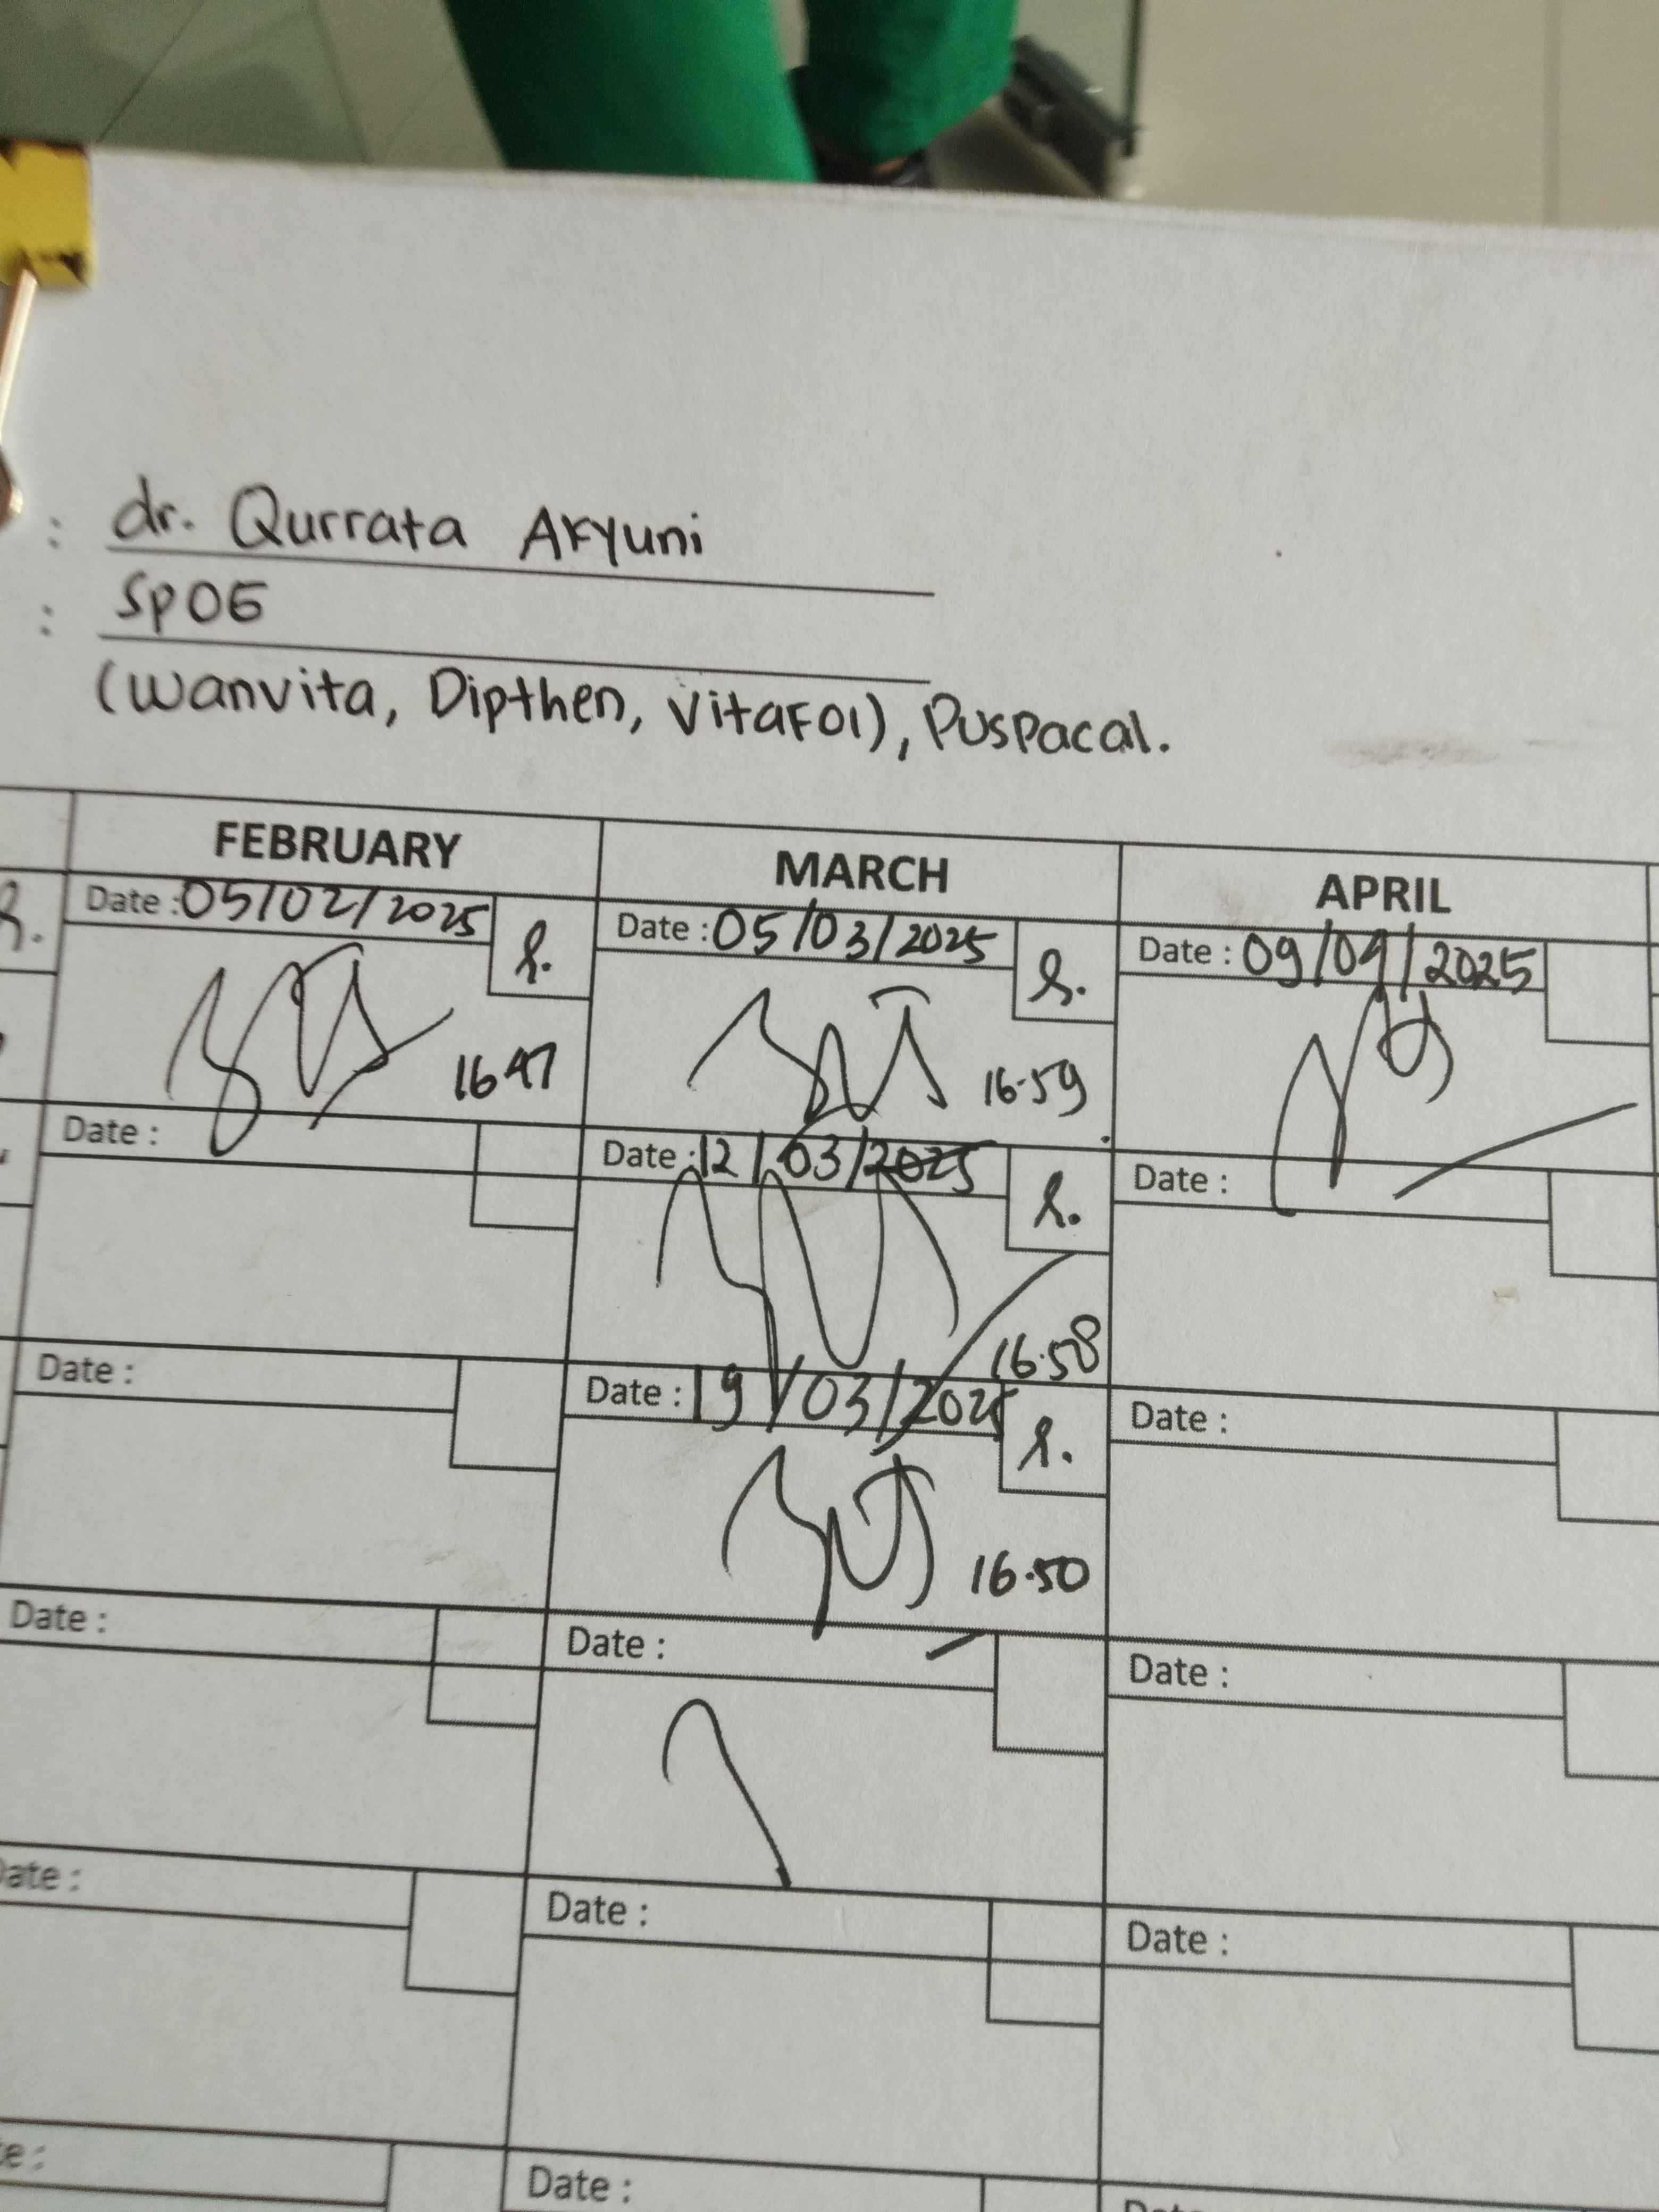 : dr. Qurrata Akyuni
: SpOG
(Wanvita, Dipthen, VitaFol), Puspacal.
FEBRUARY MARCH APRIL
Date : 05/02/2025 Date : 05/03/2025 Date : 09/04/2025
16 47 16.59
Date : Date : 12/03/2025 Date :
16.58
Date : Date : 19/03/2025 Date :
16.50
Date : Date : Date :
Date : Date : Date :
Date :